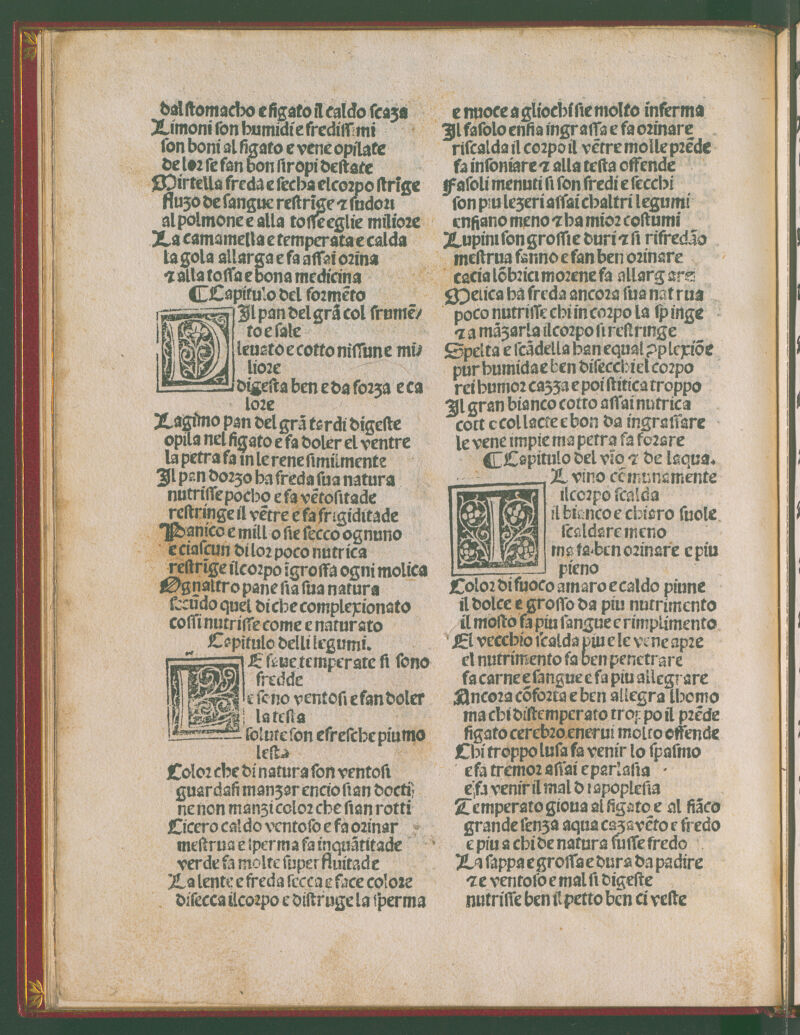 dal stomacho e figato il caldo scaza
Limoni son humidi e fredissimi
son boni al figato e vene opilate
de lor se fan bon siropi destate
Mirtella freda e secha el corpo strĩge
fluzo de sangue restrĩge ⁊ sudori
al polmone e alla tosse eglie miliore
La camamella e temperata e calda
la gola allarga e fa assai orina
⁊ alla tossa e bona medicina
¶ Capitulo del formẽto
Il pan del grã col frumẽ/
to e sale
leuato e cotto nissun e mi/
liore
digesta ben e da forza e ca
lore
Lagimo pan del grã tardi digeste
opila nel figato e fa doler el ventre
la petra fa in le rene similmente
Il pan dorzo ha freda sua natura
nutrisse pocho e fa vẽtositade
restringe il vẽtre e fa frigiditade
Panico e mill o sie secco ognuno
e ciascun di lor poco nutrica
restrĩge il corpo ĩgrossa ogni molica
Ognaltro pane sia sua natura
secũdo quel di che complexionato
cossi nutrisse come e naturato
Capitulo delli legumi.
LE faue temperate si sono
fredde
e seno ventosi e fan doler
la testa
solute son e fresche piu mo
lesta
Color che di natura son ventosi
guardasi manzar encio sian docti
ne non manzi color che sian rotti
Cicero caldo ventoso e fa orinar
mestrua e sperma fa in quãtitade
verde fa molte superfluitade
La lente e freda secca e face colore
disecca il corpo e distruge la sperma
e nuoce a gliochi sie molto inferma
Il fasolo enfia ingrassa e fa orinare
riscalda il corpo il vẽtre molle prẽde
fa insoniare ⁊ alla testa offende
Fasoli menuti si son fredi e secchi
son piu lezeri assai chaltri legumi
enfiano meno ⁊ ha mior costumi
Lupini son grossi e duri ⁊ si rifredão
mestrua fanno e fan ben orinare
cacia lõbrici morene fa allargare
Melica ha freda ancora sua natrua
poco nutrisse chi in corpo la spinge
⁊ a mãzarla il corpo si restringe
Spelta e scãdella han equal pplexiõe
pur humida e ben disecchi el corpo
rei humor cazza e poi stitica troppo
Il gran bianco cotto assai nutrica
cott e col lacte e bon da ingrassare
le vene impie ma petra fa forare
¶ Capitulo del vĩo ⁊ de laqua.
IL vino cẽmunamente
il corpo scalda
il bianco e chiaro suole
scaldare meno
ma fa ben orinare e piu
pieno
Color di fuoco amaro e caldo piune
il dolce e grosso da piu nutrimento
il mosto fa piu sangue e rimplimento
El vecchio scalda piu e le vene apre
el nutrimento fa ben penetrare
fa carne e sangue e fa piu allegrare
Ancora cõforta e ben allegra lhomo
ma chi distemperato troppo il prẽde
figato cerebro enerui molto offende
Chi troppo lusa fa venir lo spasmo
e fa tremor assai e parlasia
e fa venir il mal di apoplesia
Temperato gioua al figato e al fiãco
grande senza aqua caza vẽto e fredo
e piu a chi de natura fusse fredo
La sappa e grossa e dura da padire
⁊ e ventoso e mal si digeste
nutrisse ben il petto ben ci veste